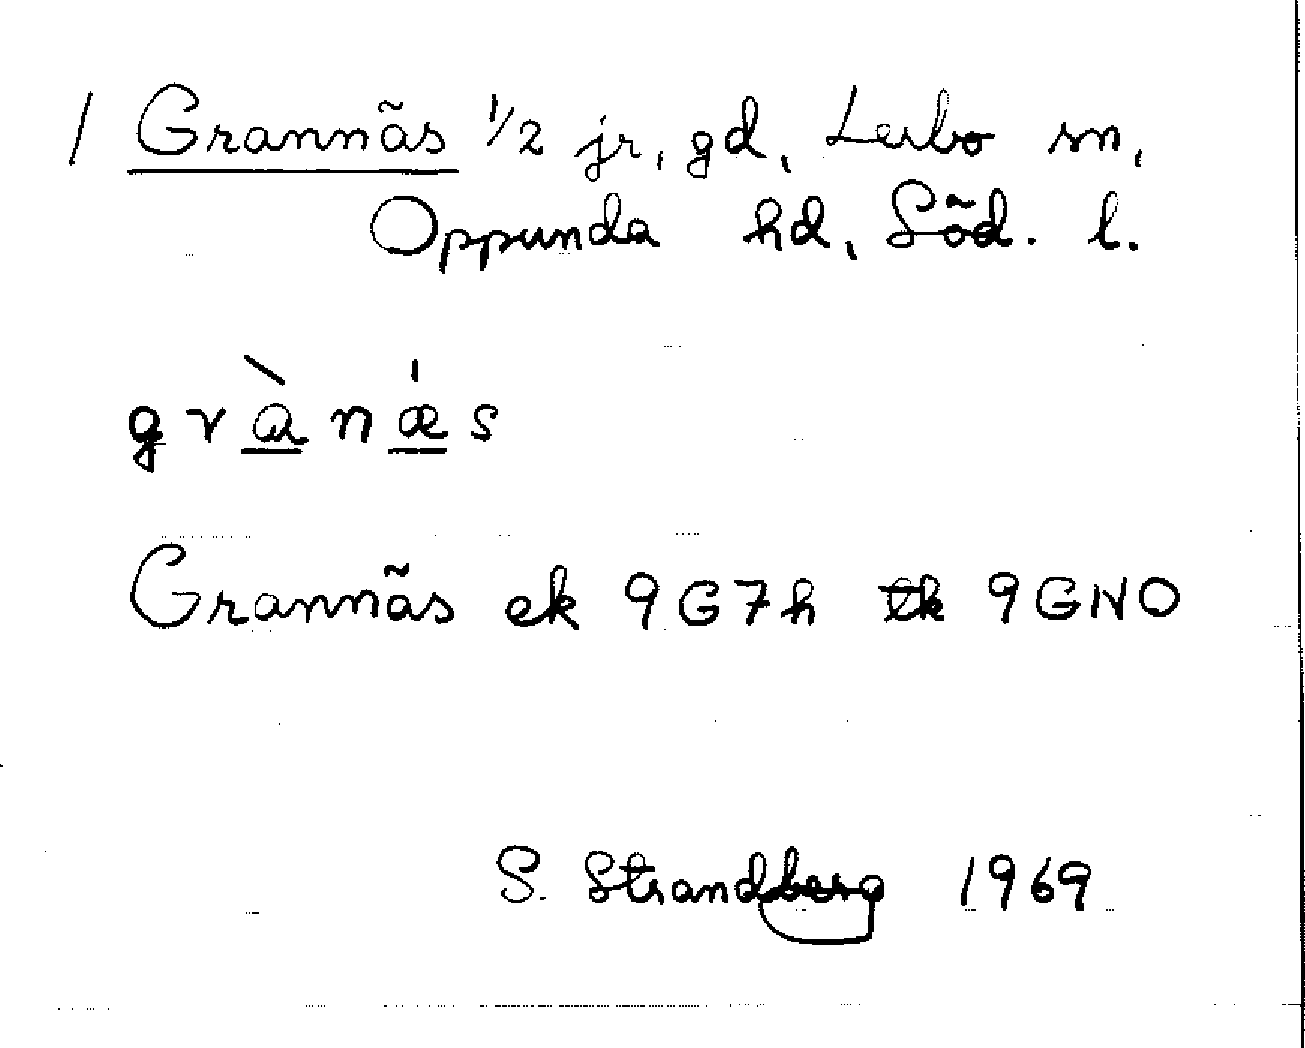 / Grannäs 1/2 jr, gd, Lerbo sn,
Oppunda hd, Söd. l.
grànǽs
Grannäs ek 9G7h tk 9GNO
S. Strandberg 1969